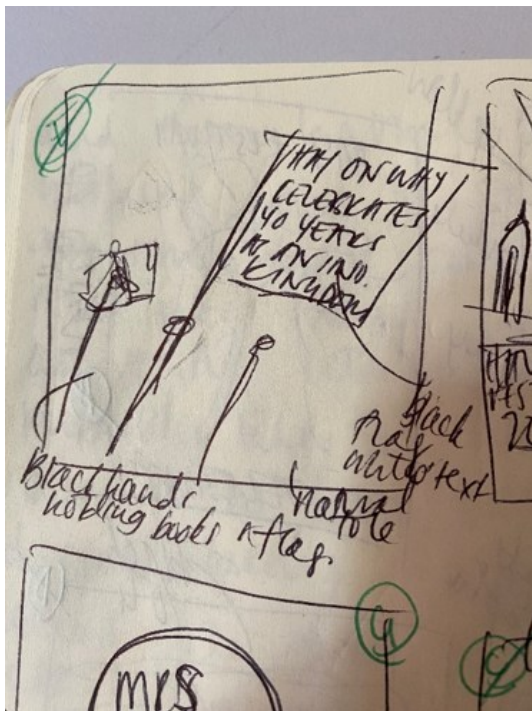 HAY ON WHY
CELEBRATES
40 YEARS
AS AN IND.
KINGDOM
Black
flag
white text
Black hands
holding books & flag
natural
tote
MRS